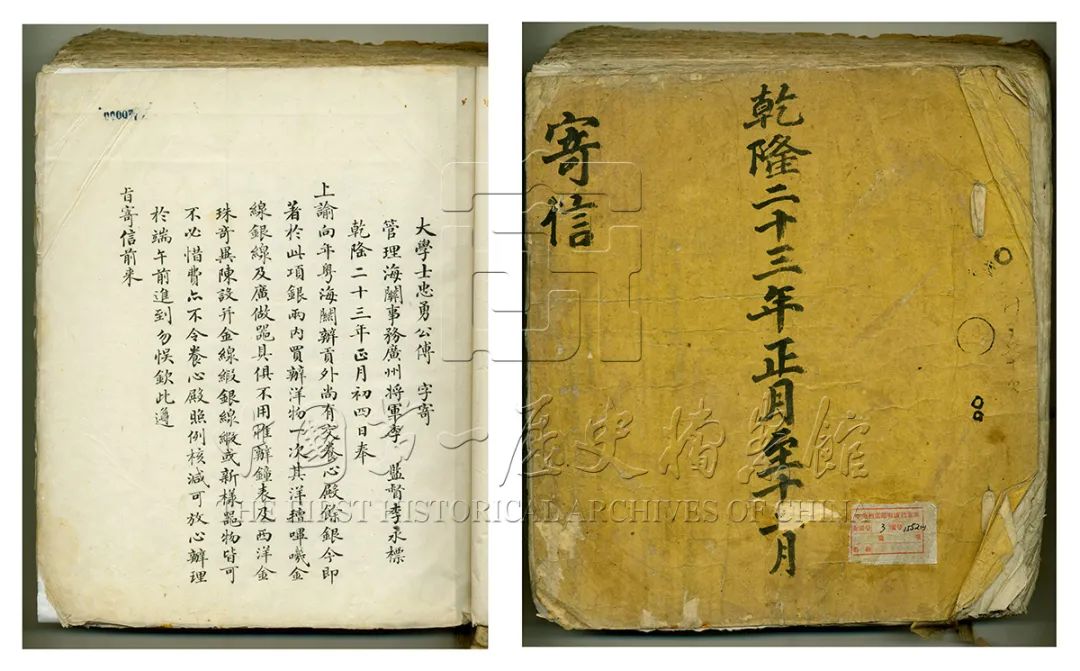 大學士忠勇公傅 字寄
管理海關事務廣州將軍李 監督李永標
乾隆二十三年正月初四日奉
上諭向年粵海關辦貢外尚有交養心殿餘銀今即
著於此項銀兩內買辦洋物一次其洋氊嗶嘰金
線銀線及廣做器具俱不用惟辦鐘表及西洋金
珠奇異陳設并金線緞銀線緞或新樣器物皆可
不必惜費亦不令養心殿照例核減可放心辦理
於端午前進到勿悞欽此遵
旨寄信前来
乾隆二十三年正月至十二月
寄信
中國第一歷史檔案館
THE FIRST HISTORICAL ARCHIVES OF CHINA